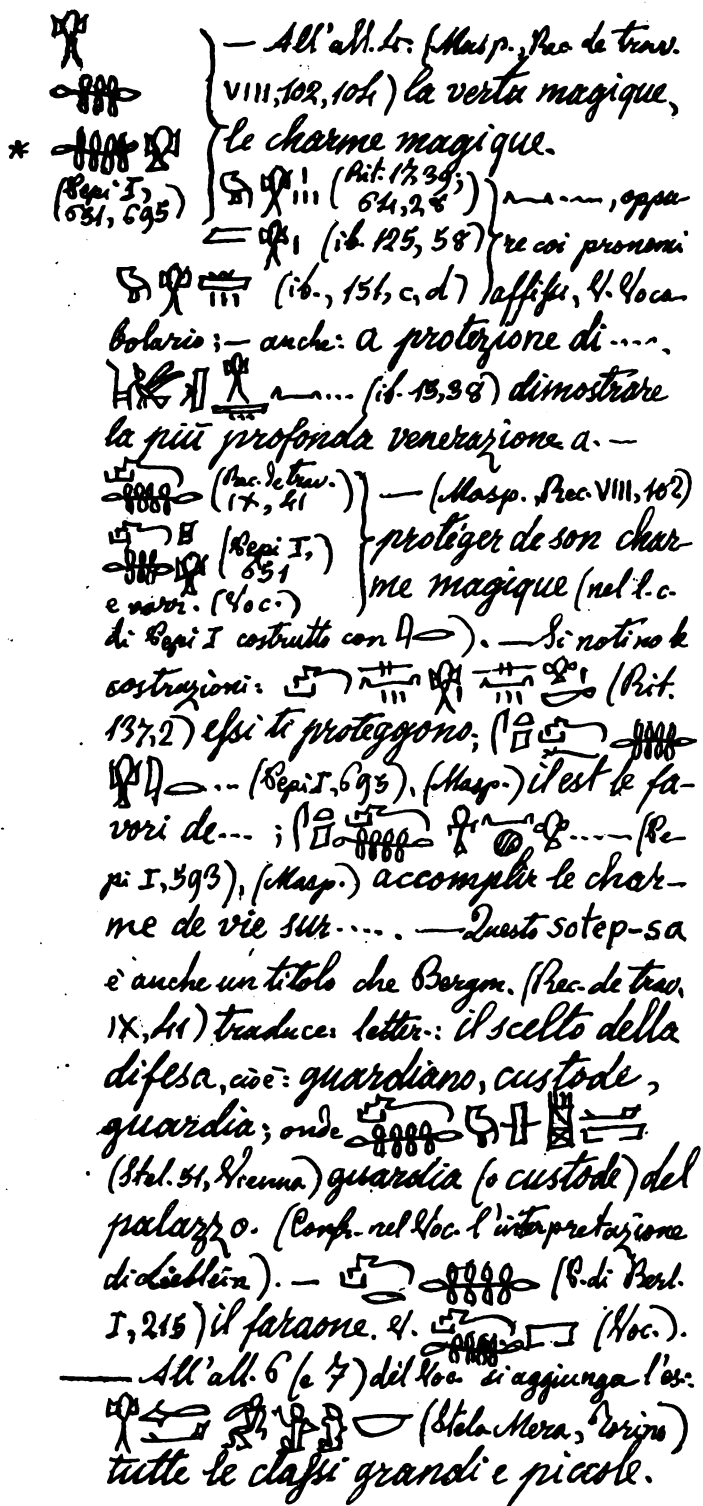 — All'all. 4: (Masp., Rec. de trav.
VIII, 102, 104) la vertu magique,
* le charme magique.
(Pepi I, 651, 695)
(Rit. 17, 39; 64, 28)
, oppu-
(ib. 125, 58) re coi pronomi
(ib., 151, c, d) affissi, V. Voca-
bolario; — anche: a protezione di ....,
.... (ib. 15, 38) dimostrare
la più profonda venerazione a. —
(Rec. de trav. IX, 41) — (Masp., Rec. VIII, 102)
(Pepi I, 651) protéger de son char-
e varr. (Voc.) me magique (nel l. c.
di Pepi I costrutto con ). — Si notino le
costruzioni: (Rit.
137, 2) essi ti proteggono;
... (Pepi I, 695), (Masp.) il est le fa-
vori de... ; ..... (Pe-
pi I, 593), (Masp.) accomplir le char-
me de vie sur ..... — Questo sotep-sa
è anche un titolo che Bergm. (Rec. de trav.
IX, 41) traduce: letter.: il scelto della
difesa, cioè: guardiano, custode,
guardia; onde
(Stel. 51, Vienna) guardia (o custode) del
palazzo. (Confr. nel Voc. l'interpretazione
di Lieblein). — (P. di Berl.
I, 215) il faraone. V. (Voc.).
— All'all. 6 (e 7) del Voc. si aggiunga l'es.:
(Stela Mera, Torino)
tutte le classi grandi e piccole.